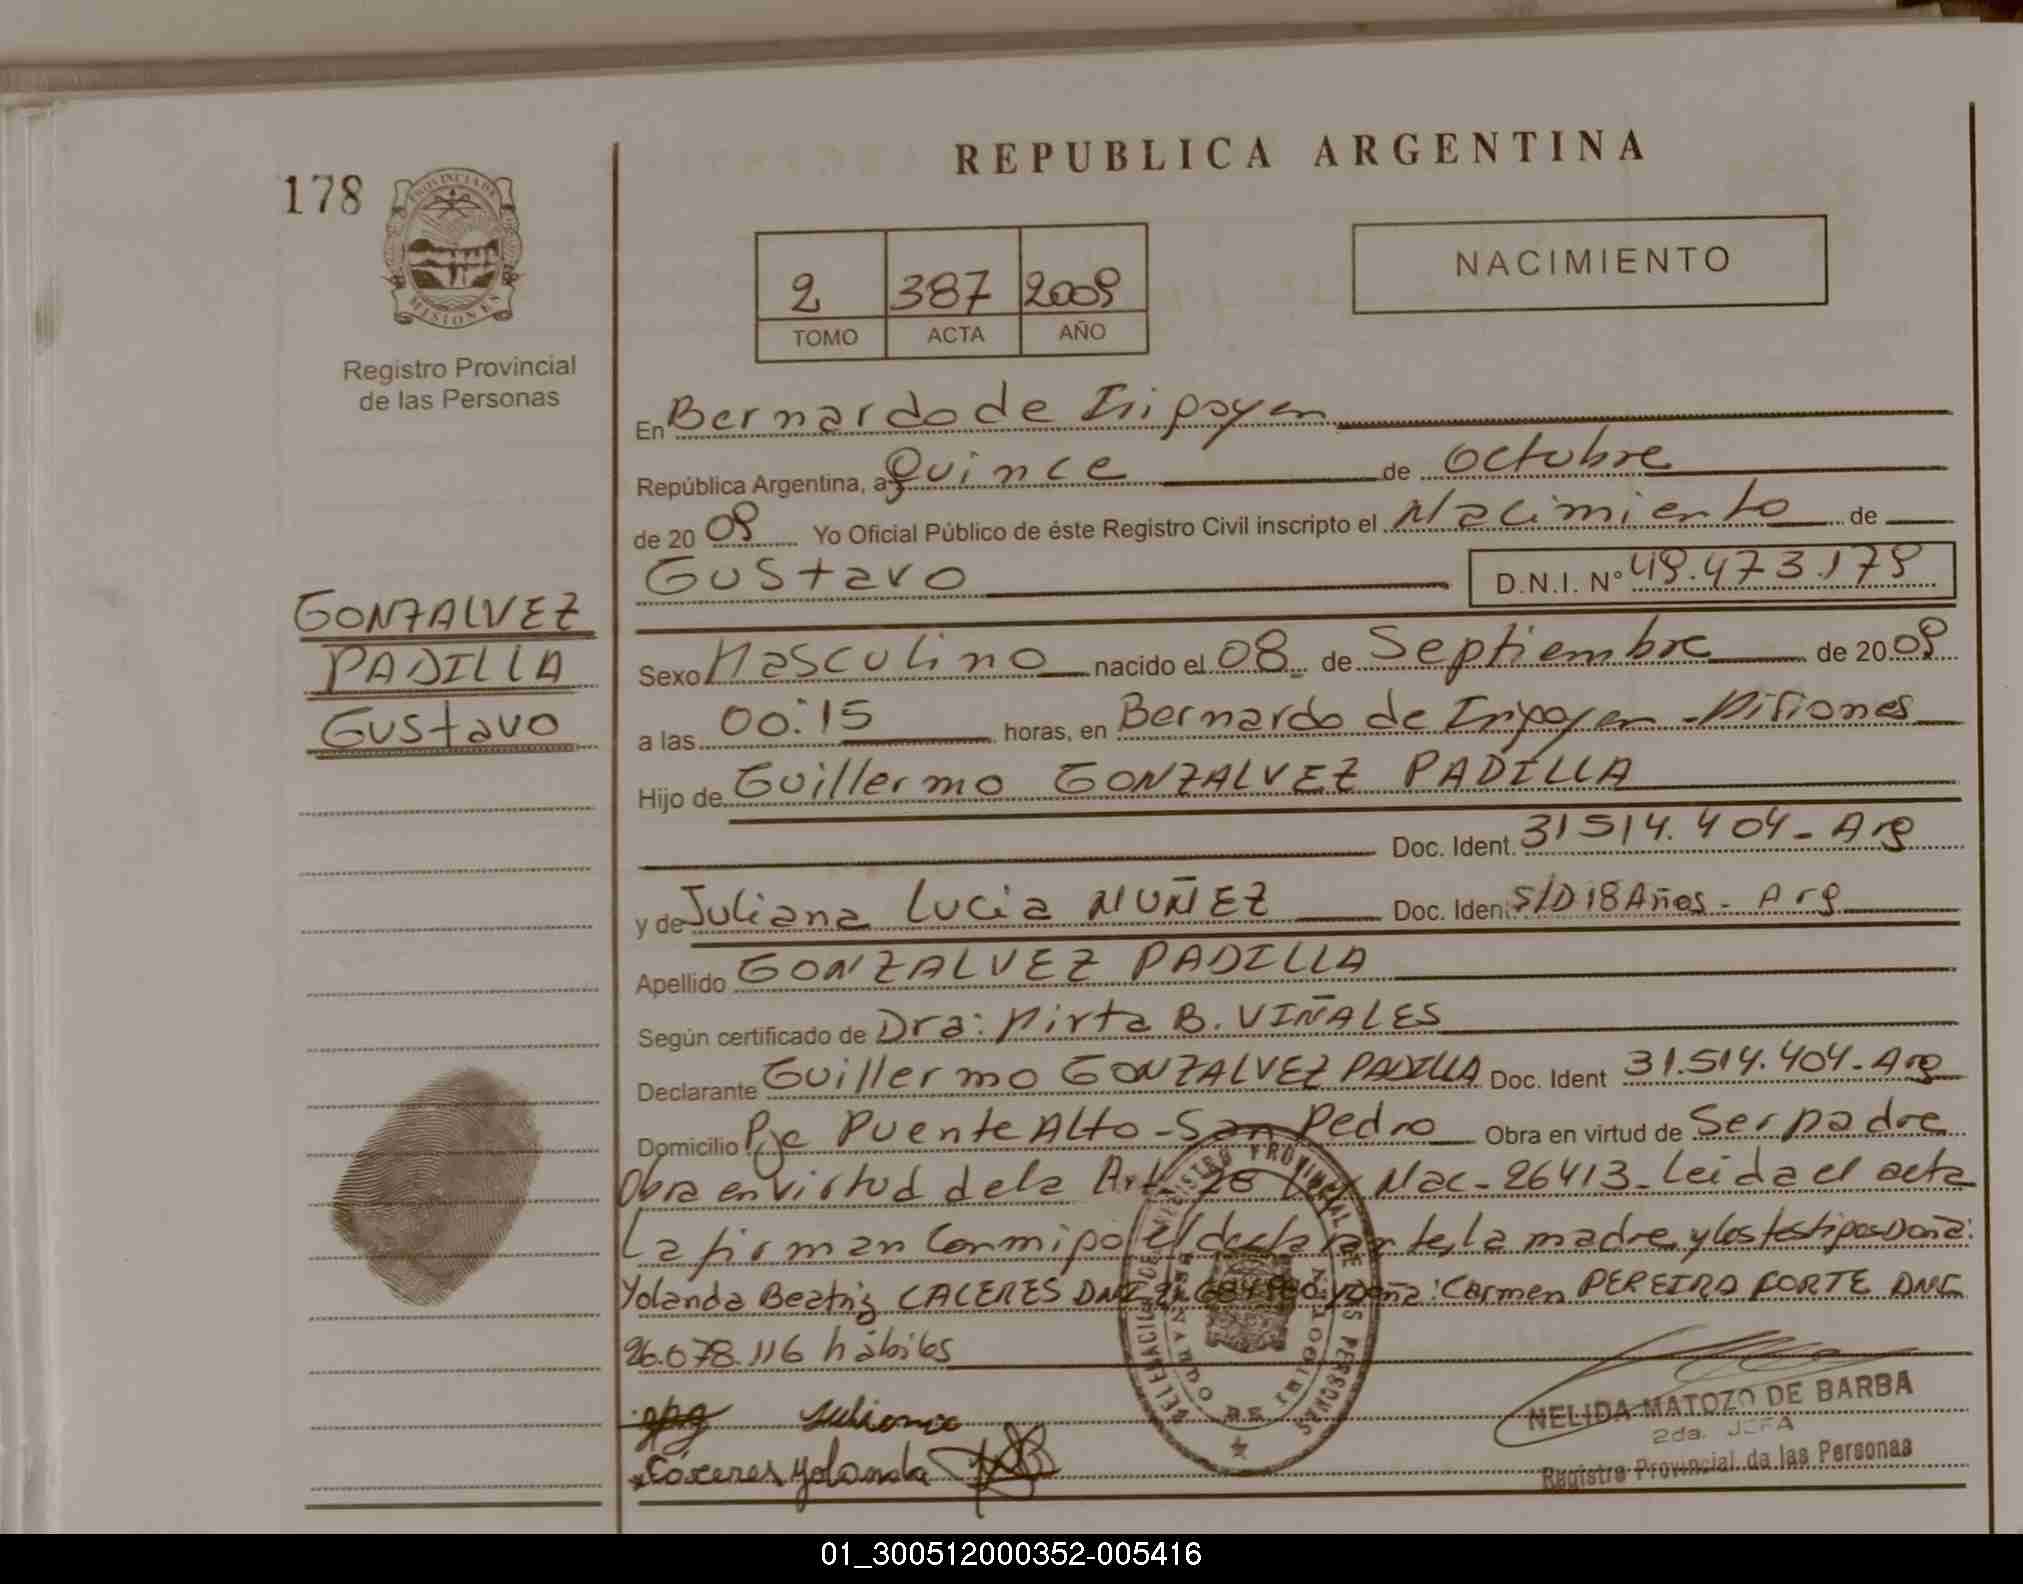 REPUBLICA ARGENTINA
178
PROVINCIA DE
MISIONES
Registro Provincial
de las Personas
NACIMIENTO
2 387 2009
TOMO ACTA AÑO
En Bernardo de Irigoyen
República Argentina, a Quince de Octubre
de 20 09 Yo Oficial Público de éste Registro Civil inscripto el Nacimiento de
Gustavo D.N.I. N° 49.473.179
GONZALVEZ
PADILLA
Gustavo
Sexo Masculino nacido el 08 de Septiembre de 20 09
a las 00:15 horas, en Bernardo de Irigoyen - Misiones
Hijo de Guillermo GONZALVEZ PADILLA
Doc. Ident. 31514.404 - Arg
y de Juliana Lucia NUÑEZ Doc. Iden. S/D 18 Años - Arg
Apellido GONZALVEZ PADILLA
Según certificado de Dra: Mirta B. VIÑALES
Declarante Guillermo GONZALVEZ PADILLA Doc. Ident 31.514.404 - Arg
Domicilio Pje Puente Alto - San Pedro Obra en virtud de Ser padre
Obra en virtud de la Art. 28 Ley Nac - 26413 - Leida el acta
La firman Conmigo el declarante, la madre y los testigos Doña:
Yolanda Beatriz CACERES DNI y Doña: Carmen PEREIRA FORTE DNI
26.078.116 hábiles
Juliana
Cáceres Yolanda
DELEGACION DEL REGISTRO PROVINCIAL DE LAS PERSONAS
BERNARDO DE IRIGOYEN
NELIDA MATOZO DE BARBA
2da. JEFA
Registro Provincial de las Personas
01_300512000352-005416